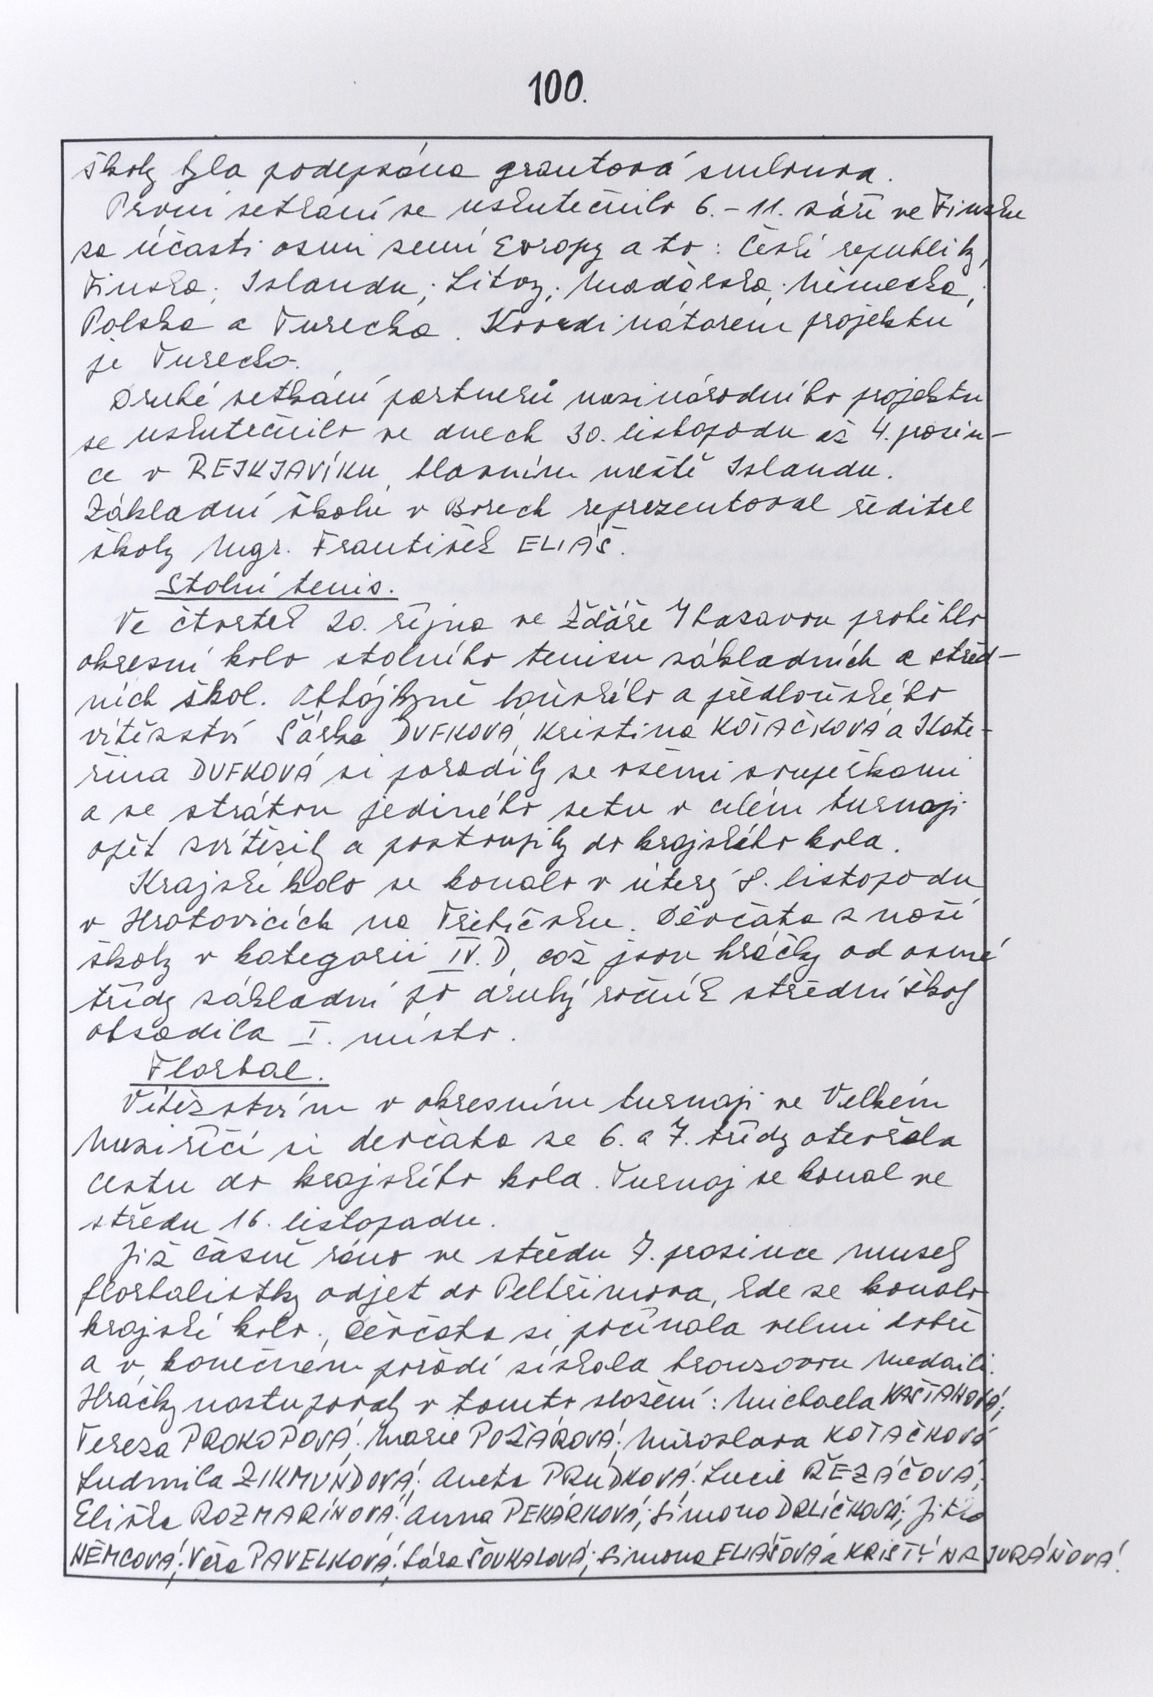 100.
školy byla podepsána grantová smlouva.
První setkání se uskutečnilo 6. – 11. září ve Finsku
za účasti osmi zemí Evropy a to: České republiky,
Finska, Islandu, Litvy, Maďarska, Německa,
Polska a Turecka. Koordinátorem projektu
je Turecko.
Druhé setkání partnerů mezinárodního projektu
se uskutečnilo ve dnech 30. listopadu až 4. prosin–
ce v REJKJAVÍKU, hlavním městě Islandu.
Základní školu v Borech reprezentoval ředitel
školy Mgr. František ELIÁŠ.
Stolní tenis.
Ve čtvrtek 20. října ve Žďáře n/Sázavou proběhlo
okresní kolo stolního tenisu základních a střed–
ních škol. Obhájkyně loňského a předloňského
vítězství Šárka DUFKOVÁ, Kristina KOŤAČKOVÁ a Kate–
řina DUFKOVÁ si poradily se všemi soupeřkami
a se ztrátou jediného setu v celém turnaji
opět zvítězily a postoupily do krajského kola.
Krajské kolo se konalo v úterý 8. listopadu
v Hrotovicích na Třebíčsku. Děvčata z naší
školy v kategorii IV.D, což jsou hráčky od osmé
třídy základní po druhý ročník střední školy
obsadila I. místo.
Florbal.
Vítězstvím v okresním turnaji ve Velkém
Meziříčí si děvčata ze 6. a 7. třídy otevřela
cestu do krajského kola. Turnaj se konal ve
středu 16. listopadu.
Již časně ráno ve středu 7. prosince musely
florbalistky odjet do Pelhřimova, kde se konalo
krajské kolo. Děvčata si počínala velmi dobře
a v konečném pořadí získala bronzovou medaili.
Hráčky nastupovaly v tomto složení: Michaela KAŠTANOVÁ,
Tereza PROKOPOVÁ, Marie POŽÁROVÁ, Miroslava KOŤAČKOVÁ
Ludmila ZIKMUNDOVÁ, Aneta PRUDKOVÁ, Lucie ŘEZÁČOVÁ,
Eliška ROZMARÍNOVÁ, Anna PEKÁRKOVÁ, Simona DRLÍČKOVÁ, Jitka
NĚMCOVÁ, Věra PAVELKOVÁ, Sára ŠOUKALOVÁ, Simona ELIÁŠOVÁ a KRISTÝNA JURÁŇOVÁ.